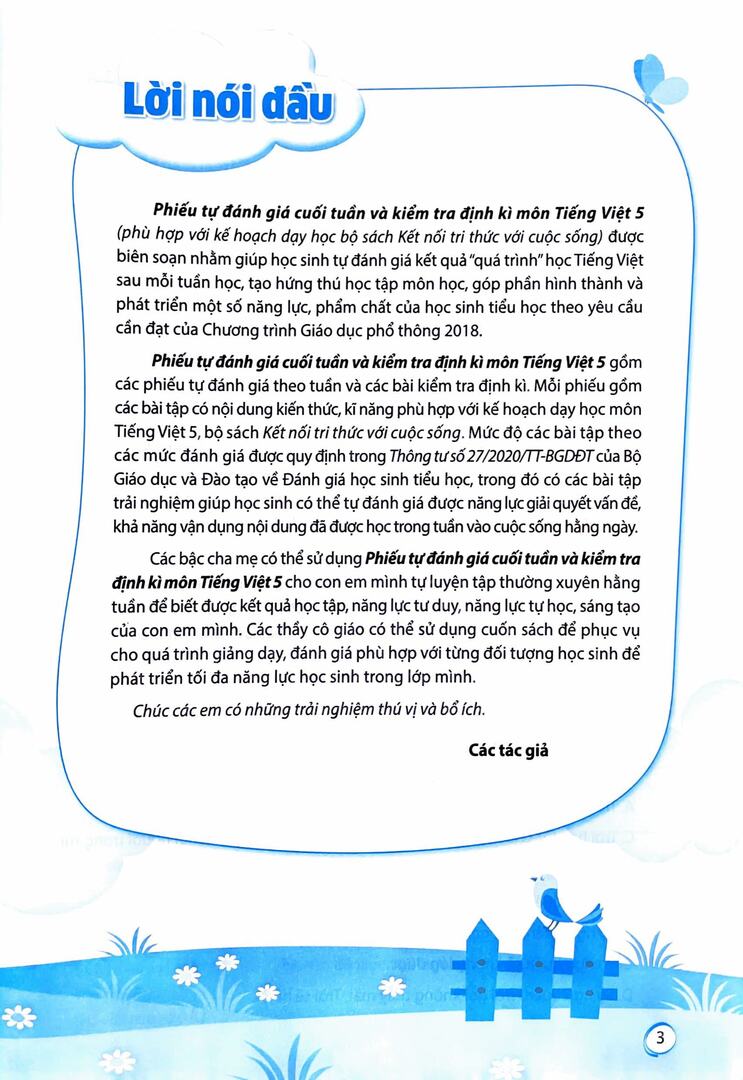 Lời nói đầu
Phiếu tự đánh giá cuối tuần và kiểm tra định kì môn Tiếng Việt 5
(phù hợp với kế hoạch dạy học bộ sách Kết nối tri thức với cuộc sống) được
biên soạn nhằm giúp học sinh tự đánh giá kết quả “quá trình” học Tiếng Việt
sau mỗi tuần học, tạo hứng thú học tập môn học, góp phần hình thành và
phát triển một số năng lực, phẩm chất của học sinh tiểu học theo yêu cầu
cần đạt của Chương trình Giáo dục phổ thông 2018.
Phiếu tự đánh giá cuối tuần và kiểm tra định kì môn Tiếng Việt 5 gồm
các phiếu tự đánh giá theo tuần và các bài kiểm tra định kì. Mỗi phiếu gồm
các bài tập có nội dung kiến thức, kĩ năng phù hợp với kế hoạch dạy học môn
Tiếng Việt 5, bộ sách Kết nối tri thức với cuộc sống. Mức độ các bài tập theo
các mức đánh giá được quy định trong Thông tư số 27/2020/TT-BGDĐT của Bộ
Giáo dục và Đào tạo về Đánh giá học sinh tiểu học, trong đó có các bài tập
trải nghiệm giúp học sinh có thể tự đánh giá được năng lực giải quyết vấn đề,
khả năng vận dụng nội dung đã được học trong tuần vào cuộc sống hằng ngày.
Các bậc cha mẹ có thể sử dụng Phiếu tự đánh giá cuối tuần và kiểm tra
định kì môn Tiếng Việt 5 cho con em mình tự luyện tập thường xuyên hằng
tuần để biết được kết quả học tập, năng lực tư duy, năng lực tự học, sáng tạo
của con em mình. Các thầy cô giáo có thể sử dụng cuốn sách để phục vụ
cho quá trình giảng dạy, đánh giá phù hợp với từng đối tượng học sinh để
phát triển tối đa năng lực học sinh trong lớp mình.
Chúc các em có những trải nghiệm thú vị và bổ ích.
Các tác giả
3